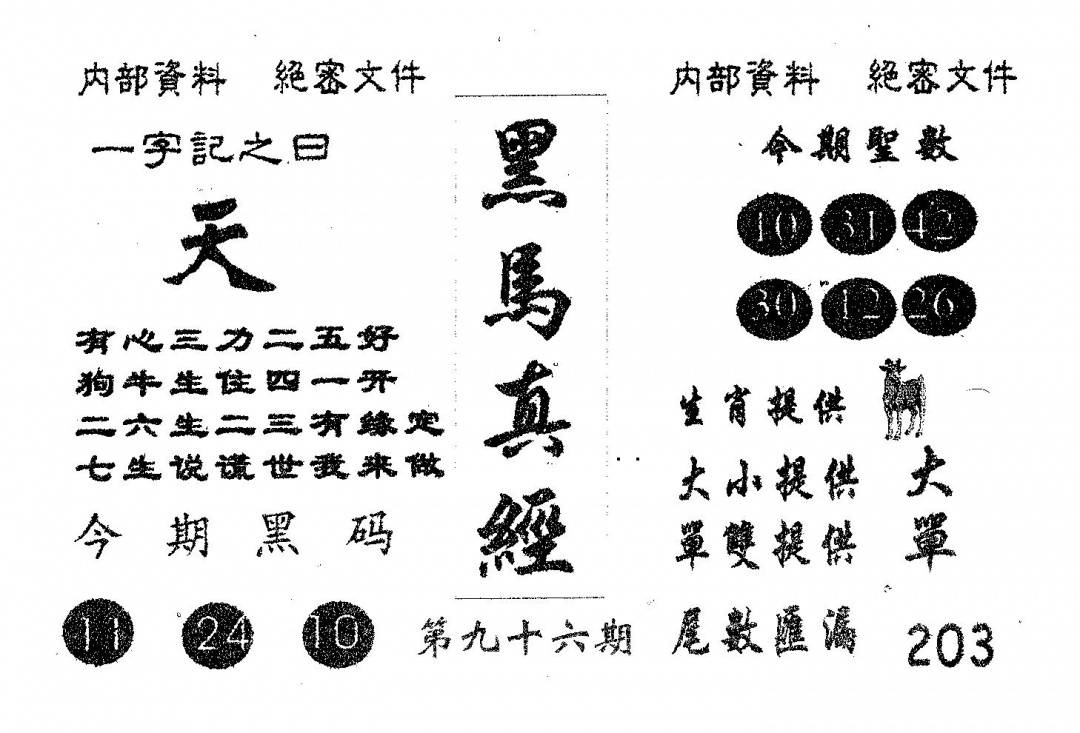 内部資料 絕密文件
一字記之曰
天
有心三力二五好
狗牛生住四一开
二六生二三有缘定
七生说谎世我来做
今期黑码
11 24 10
黑馬真經
第九十六期
内部資料 絕密文件
今期聖數
10 31 42
30 12 26
生肖提供
大小提供 大
單雙提供 單
尾數匯漏 203